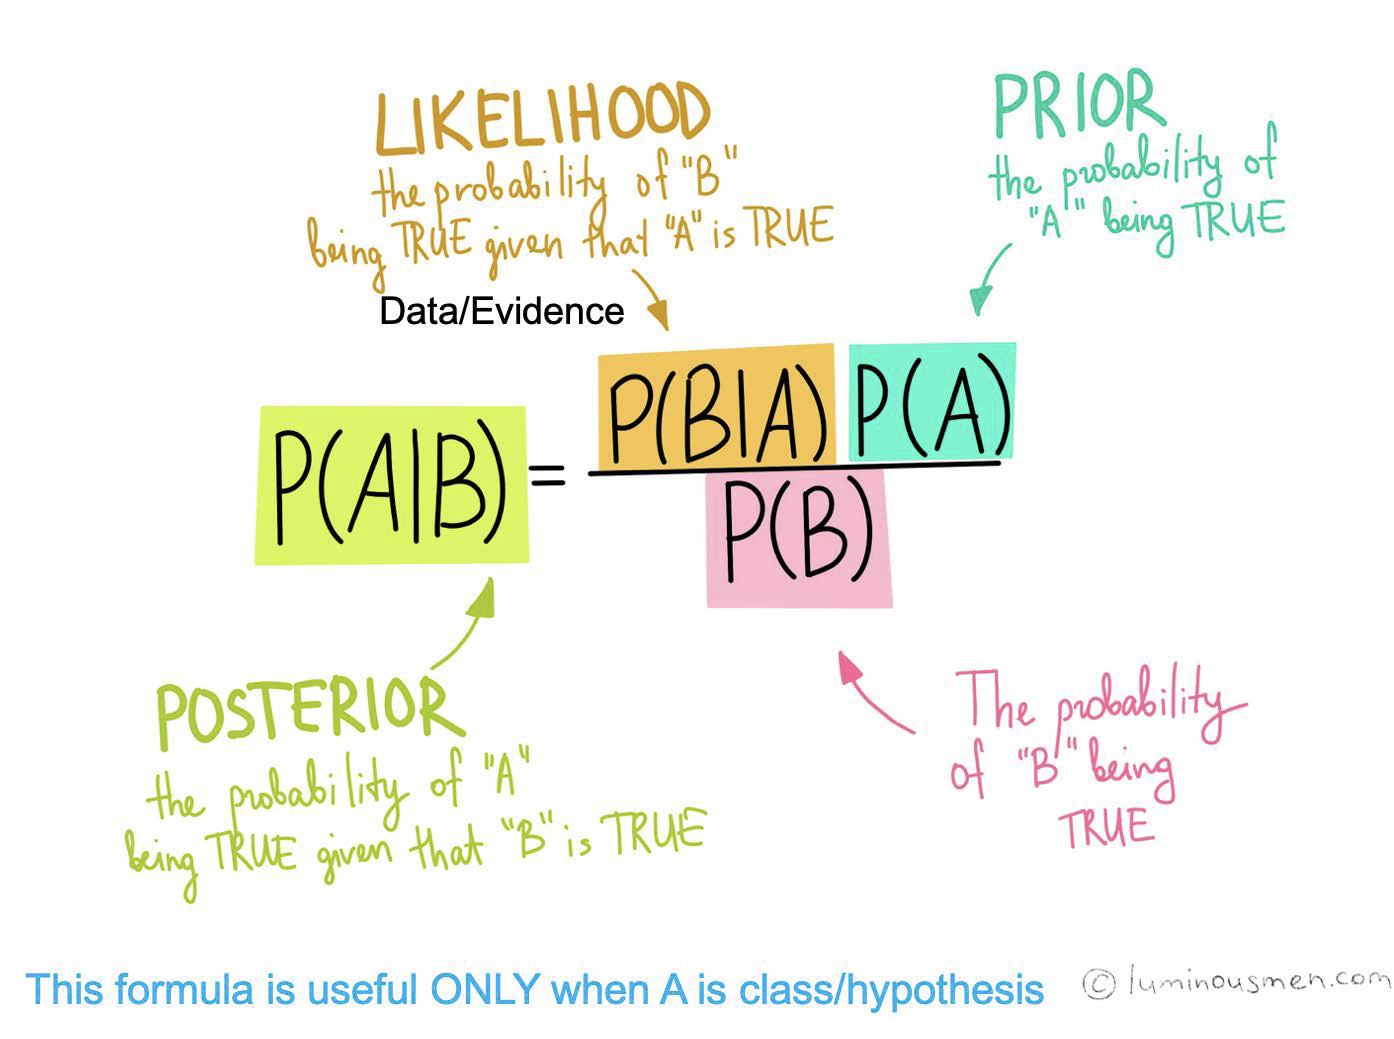 LIKELIHOOD
the probability of "B"
being TRUE given that "A" is TRUE
Data/Evidence
PRIOR
the probability of
"A" being TRUE
P(A|B) = P(B|A) P(A)
P(B)
POSTERIOR
the probability of "A"
being TRUE given that "B" is TRUE
The probability
of "B" being
TRUE
This formula is useful ONLY when A is class/hypothesis
© luminousmen.com